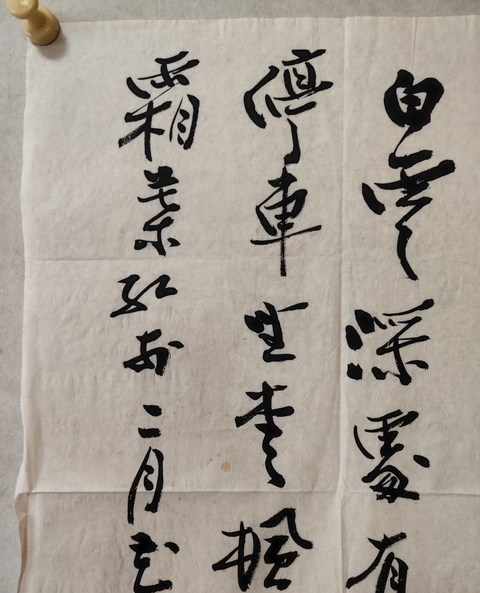 白雲深處有
停車坐愛楓
霜葉紅於二月花